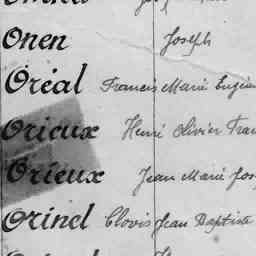 Onen Joseph
Oréal Francis Marie Eugène
Orieux Henri Olivier Fran
Orieux Jean Marie Jos
Orinel Clovis Jean Baptiste